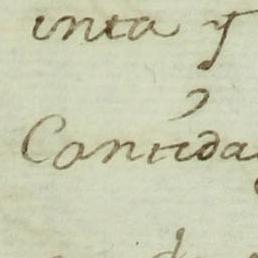 inta y
Cantida